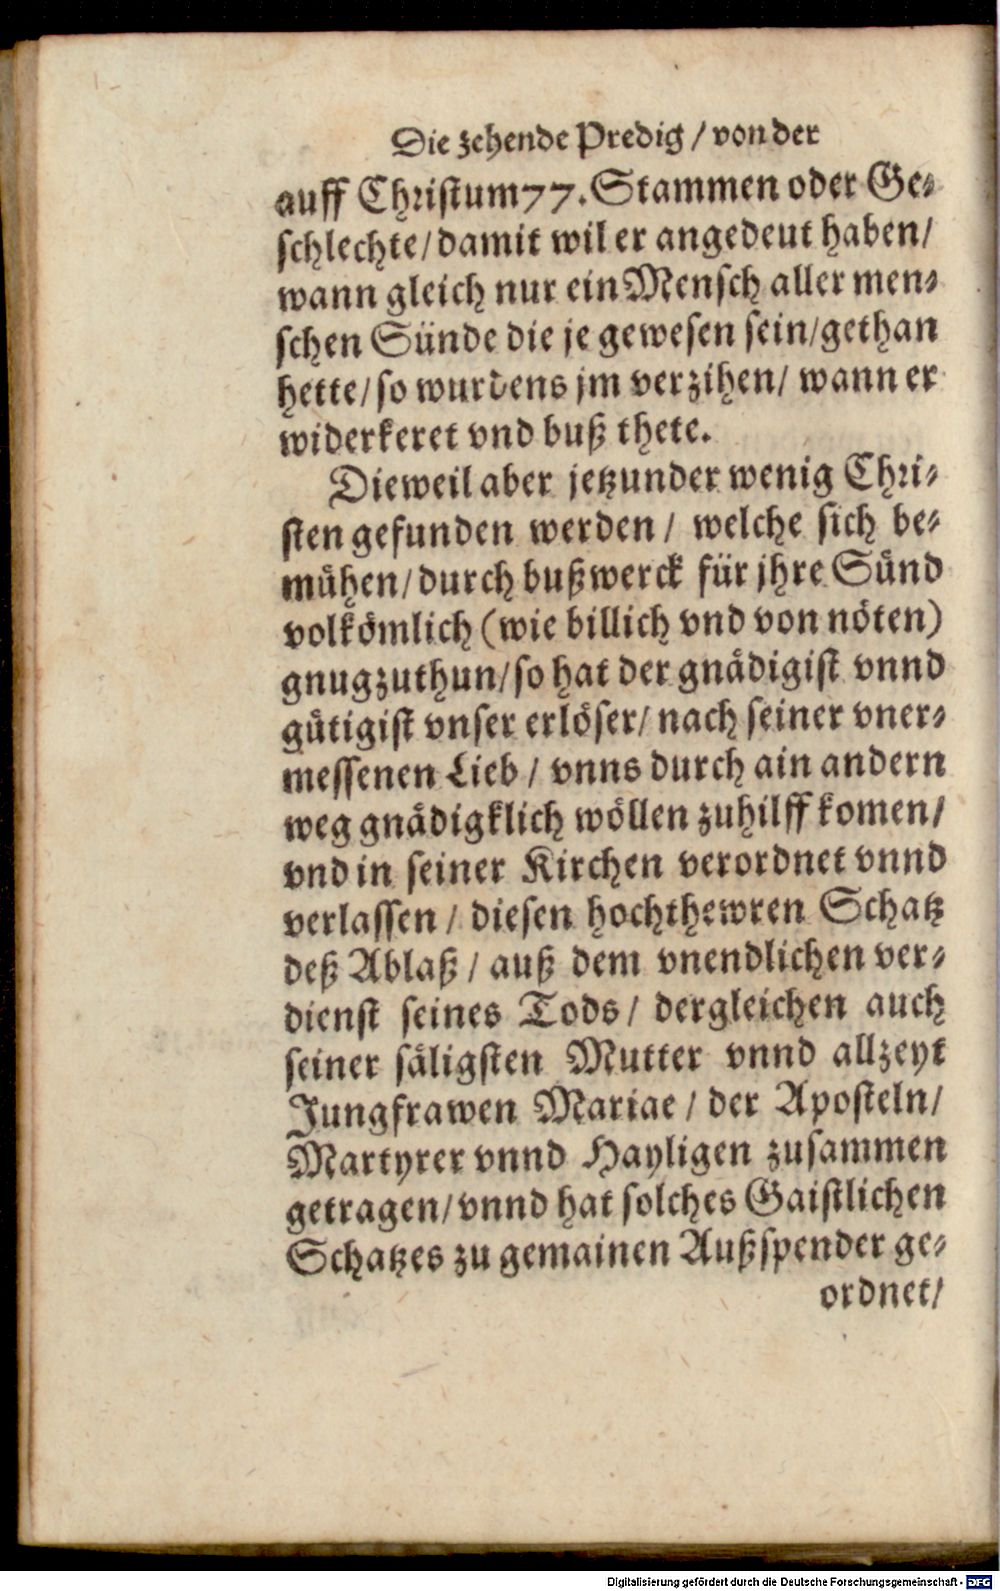 Die zehende Predig / von der
auff Christum 77. Stammen oder Ge-
schlechte / damit wil er angedeut haben /
wann gleich nur ein Mensch aller men-
schen Sünde die je gewesen sein / gethan
hette / so wurdens jm verzihen / wann er
widerkeret vnd buß thete.
Dieweil aber jetzunder wenig Chri-
sten gefunden werden / welche sich be-
mühen / durch bußwerck für jhre Sünd
volkömlich (wie billich vnd von nöten)
gnugzuthun / so hat der gnädigist vnnd
gütigist vnser erlöser / nach seiner vner-
messenen Lieb / vnns durch ain andern
weg gnädigklich wöllen zuhilff komen /
vnd in seiner Kirchen verordnet vnnd
verlassen / diesen hochthewren Schatz
deß Ablaß / auß dem vnendlichen ver-
dienst seines Tods / dergleichen auch
seiner säligsten Mutter vnnd allzeyt
Jungfrawen Mariae / der Aposteln /
Martyrer vnnd Hayligen zusammen
getragen / vnnd hat solches Gaistlichen
Schatzes zu gemainen Außspender ge-
ordnet /
Digitalisierung gefördert durch die Deutsche Forschungsgemeinschaft - DFG